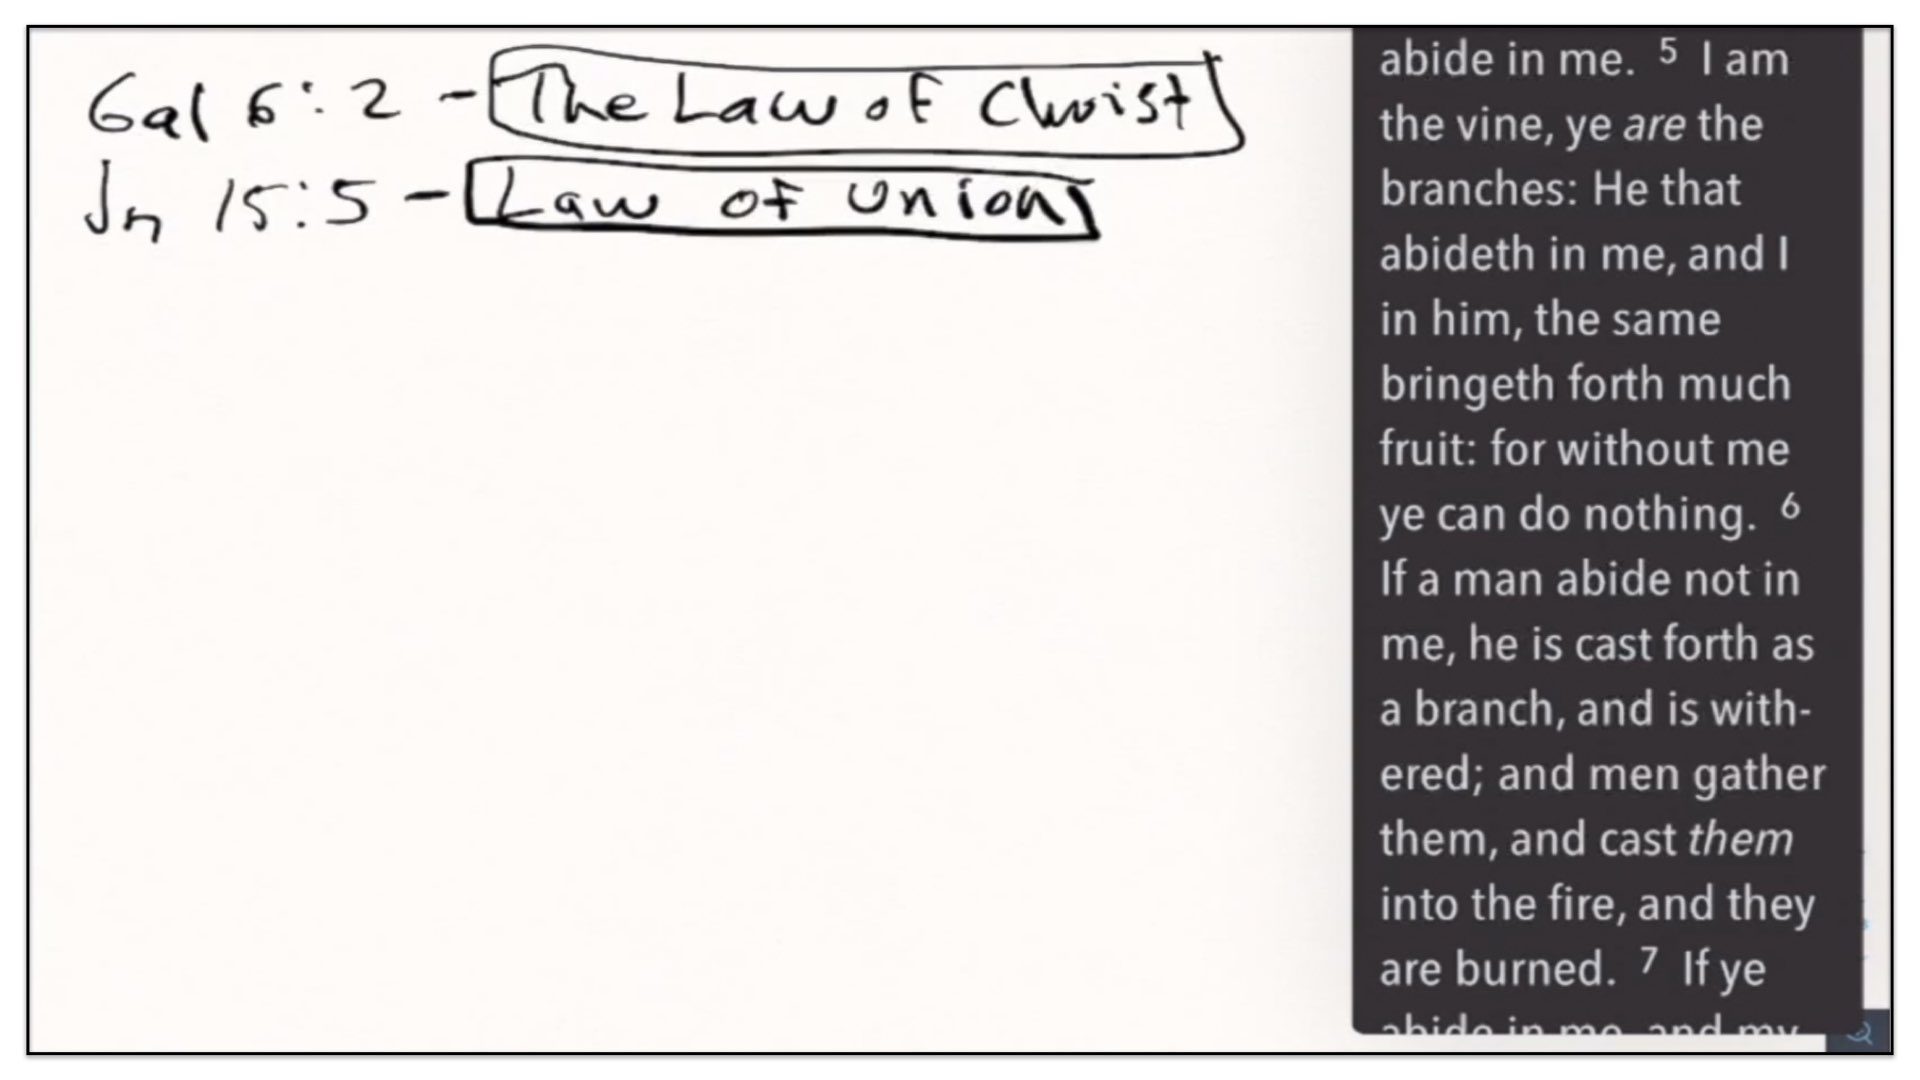 Gal 6:2 - The Law of Christ
Jn 15:5 - Law of Union
abide in me. 5 I am
the vine, ye are the
branches: He that
abideth in me, and I
in him, the same
bringeth forth much
fruit: for without me
ye can do nothing. 6
If a man abide not in
me, he is cast forth as
a branch, and is with-
ered; and men gather
them, and cast them
into the fire, and they
are burned. 7 If ye
abide in me, and my